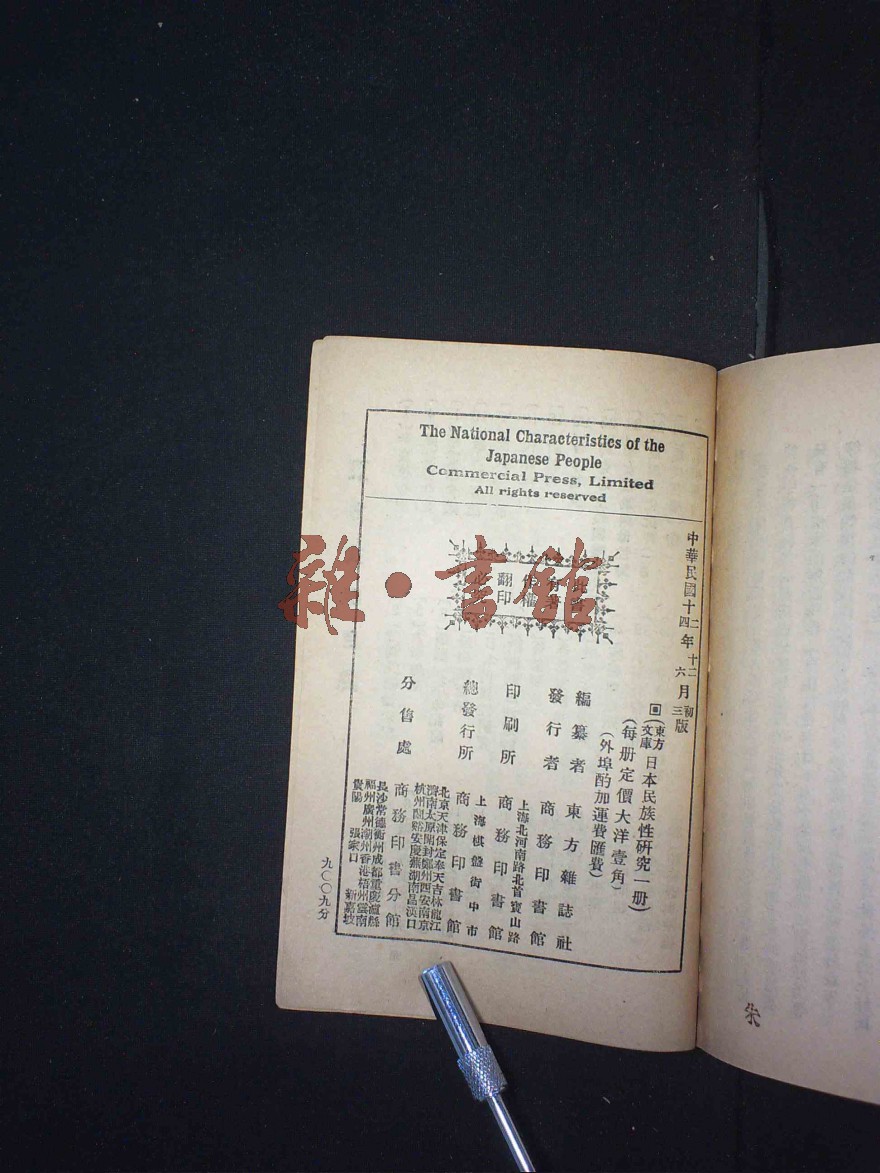 The National Characteristics of the
Japanese People
Commercial Press, Limited
All rights reserved
中華民國十二年十二月初版
十四 六 三
(東方文庫)日本民族性研究一册)
(每册定價大洋壹角)
(外埠酌加運費匯費)
編纂者 東方雜誌社
發行者 商務印書館
印刷所 上海北河南路北首寶山路 商務印書館
總發行所 上海棋盤街中市 商務印書館
分售處 商務印書分館
北京天津保定奉天吉林龍江
濟南太原開封鄭州西安南京
杭州蘭谿安慶蕪湖南昌漢口
長沙常德衡州成都重慶瀘縣
福州廣州潮州香港梧州雲南
貴陽 張家口 新嘉坡
九〇〇九分
翻印
雜·書館
朱